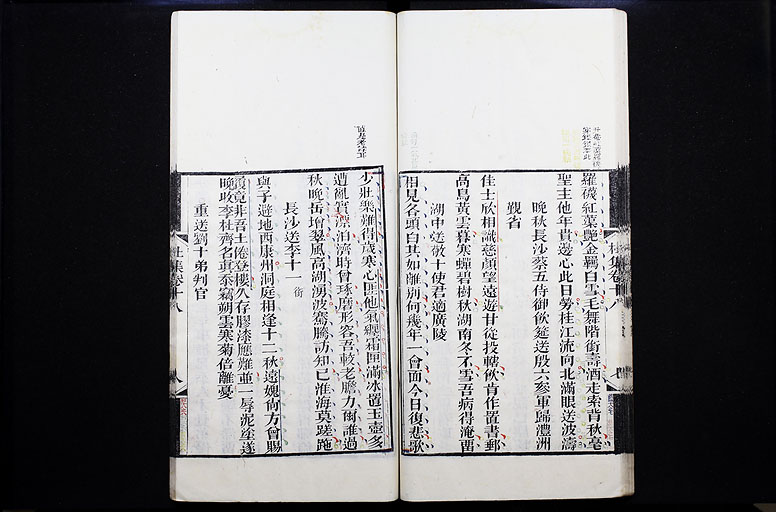 羅襪紅蕖艷金羈白雪毛舞階銜壽酒走索背秋毫
聖主他年貴邊心此日勞桂江流向北滿眼送波濤
晚秋長沙蔡五侍御飲筵送殷六參軍歸澧州
覲省
佳士欣相識慈顏望遠遊甘從投轄飲肯作置書郵
高鳥黃雲暮寒蟬碧樹秋湖南冬不雪吾病得淹留
湖中送敬十使君適廣陵
相見各頭白其如離別何幾年一會面今日復悲歌
少壯樂難得歲寒心匪他氣纏霜匣滿冰置玉壺多
遭亂實漂泊濟時曾琢磨形容吾較老膽力爾誰過
秋晚岳增翠風高湖湧波騫騰訪知己淮海莫蹉跎
長沙送李十一 銜
與子避地西康州洞庭相逢十二秋遠媿尚方曾賜
履竟非吾土倦登樓久存膠漆應難並一辱泥塗遂
晚收李杜齊名真忝竊朔雲寒菊倍離憂
重送劉十弟判官
杜集卷十八
八
杜集卷十八